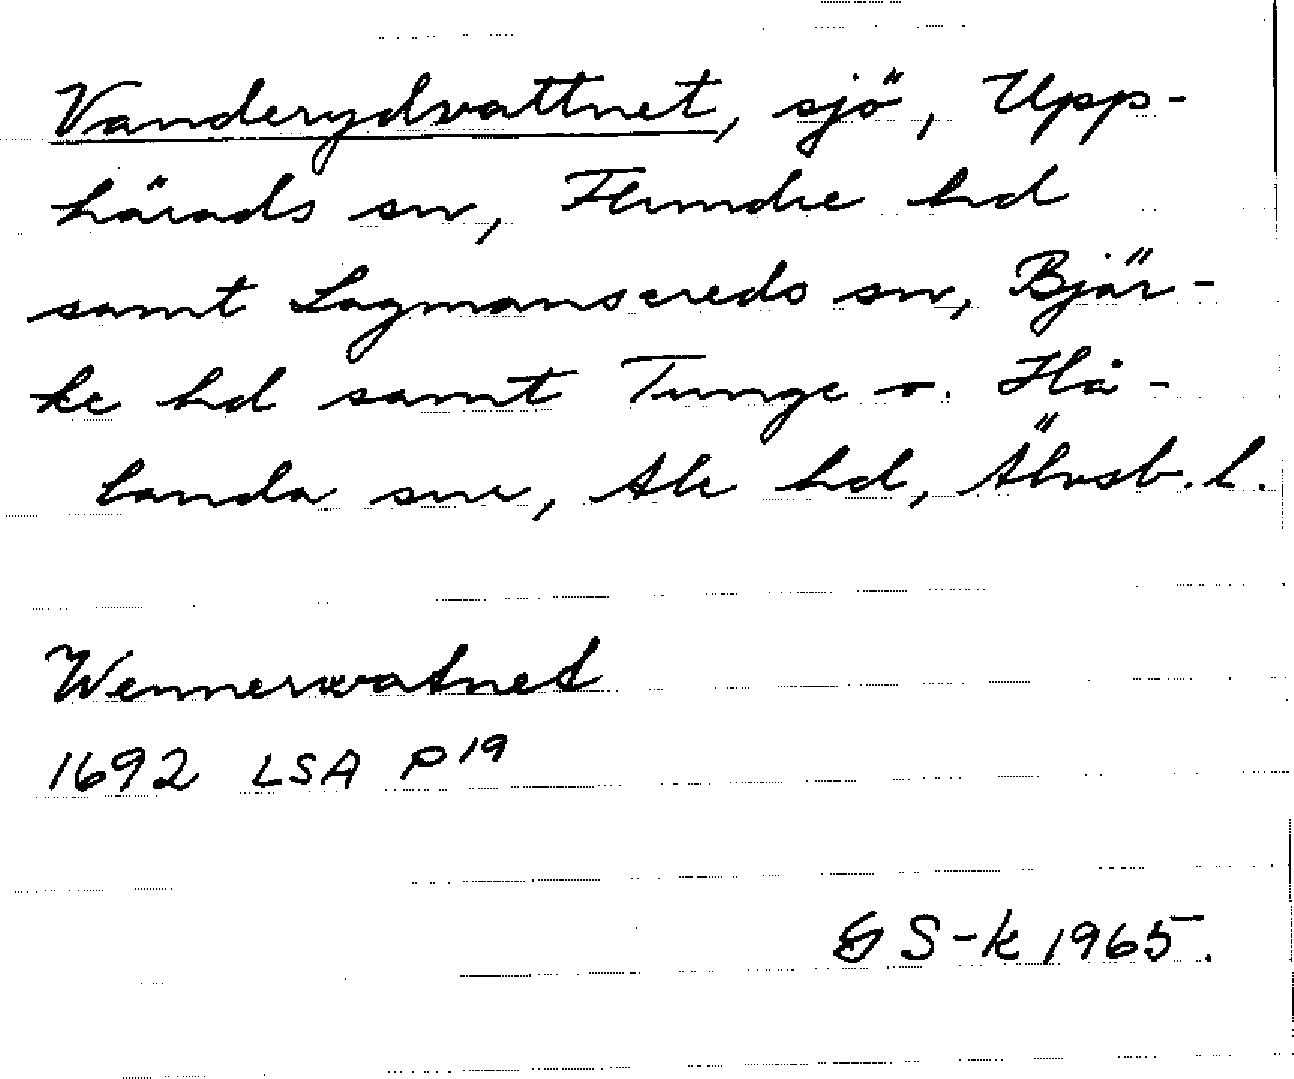 Vanderydsvattnet, sjö, Upp-
härads sn, Flundre hd
samt Lagmansereds sn, Bjär-
ke hd samt Tunge o. Hå-
landa snr, Ale hd, Älvsb. l.
Wennerwatnet
1692 LSA P19
GS-k 1965.